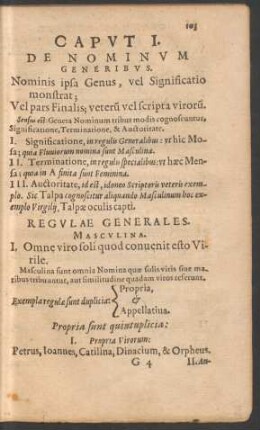 103
CAPVT I.
DE NOMINVM
GENERIBVS.
Nominis ipsa Genus, vel Significatio
monstrat;
Vel pars Finalis; veterũ vel scripta virorũ.
Sensus est: Genera Nominum tribus modis cognoscuntur,
Significatione, Terminatione, & Auctoritate.
I. Significatione, in regulis Generalibus: vt hic Mo-
sa; quia Fluviorum nomina sunt Masculina.
II. Terminatione, in regulis specialibus: vt hæc Men-
sa; quia in A finita sunt Feminina.
III. Auctoritate, id est, idoneo Scriptoris veteris exem-
plo. Sic Talpa cognoscitur aliquando Masculinum hoc ex-
emplo Virgilij, Talpæ oculis capti.
REGVLAE GENERALES.
MASCVLINA.
I. Omne viro soli quod convenit esto Vi-
rile.
Masculina sunt omnia Nomina quæ solis viris sive ma-
ribus tribuuntur, aut similitudine quadam viros referunt.
Propria,
Exempla regulæ sunt duplicia: { &
Appellativa.
Propria sunt quintuplicia:
I. Propria Virorum:
Petrus, Ioannes, Catilina, Dinacium, & Orpheus.
G 4 II. An-